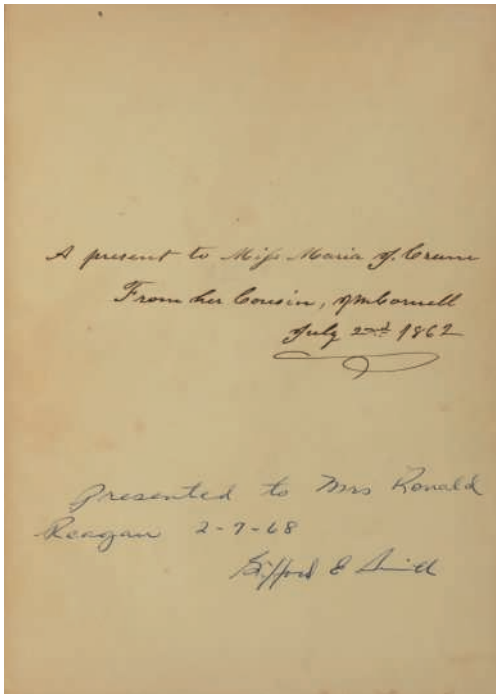 A present to Miss Maria J. Crum
From her Cousin, JmCornell
July 22nd 1862
Presented to Mrs Ronald
Reagan 2-7-68
Gifford E Smith